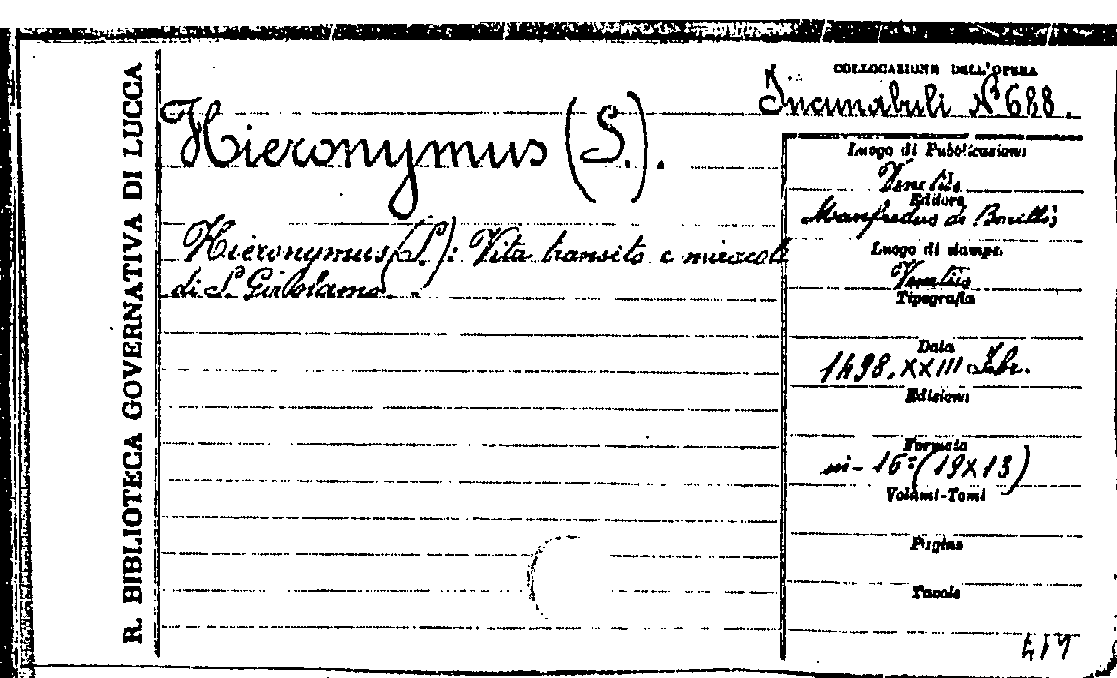 R. BIBLIOTECA GOVERNATIVA DI LUCCA
COLLOCAZIONE DELL'OPERA
Incunabuli N° 688.
Hieronymus (S.).
Hieronymus (S.): Vita transito e miracoli
di S. Girolamo.
Luogo di Pubblicazione
Venetiis
Editore
Manfredus de Bonellis
Luogo di stampa
Venetiis
Tipografia
Data
1498. XXIII Febr.
Edizione
Formato
in-16° (19X13)
Volumi-Tomi
Pagine
Tavole